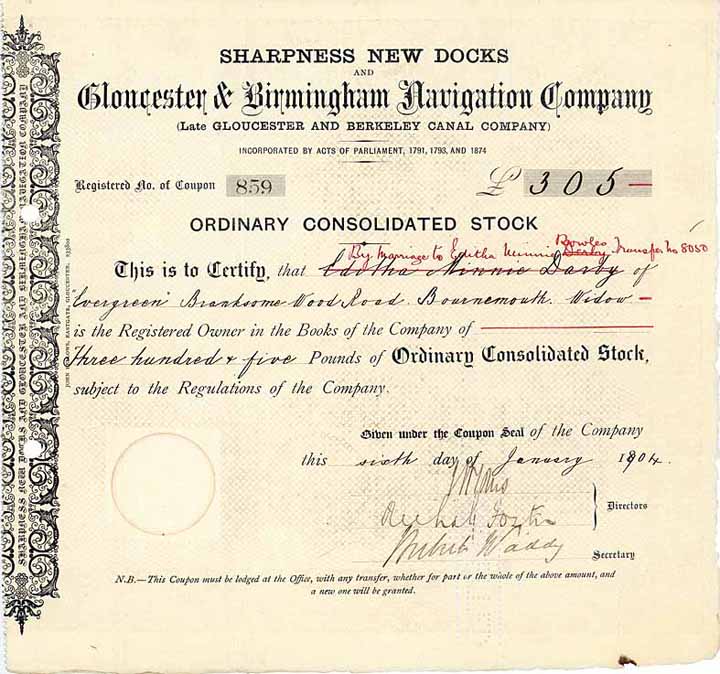 SHARPNESS NEW DOCKS
AND
Gloucester & Birmingham Navigation Company
(Late GLOUCESTER AND BERKELEY CANAL COMPANY)
INCORPORATED BY ACTS OF PARLIAMENT, 1791, 1793, AND 1874
Registered No. of Coupon 859 £ 305 —
ORDINARY CONSOLIDATED STOCK
Bowles
By Marriage to Editha Minnie Derby Transfer No 8050
This is to Certify, that Editha Minnie Darby of
"Evergreen" Branksome Wood Road. Bournemouth. Widow —
is the Registered Owner in the Books of the Company of
Three hundred & five Pounds of Ordinary Consolidated Stock,
subject to the Regulations of the Company.
Given under the Coupon Seal of the Company
this sixth day of January 1904.
Directors
Waddy
Secretary
N.B.—This Coupon must be lodged at the Office, with any transfer, whether for part or the whole of the above amount, and
a new one will be granted.
SHARPNESS NEW DOCKS AND GLOUCESTER AND BIRMINGHAM NAVIGATION COMPANY
EASTGATE, GLOUCESTER.